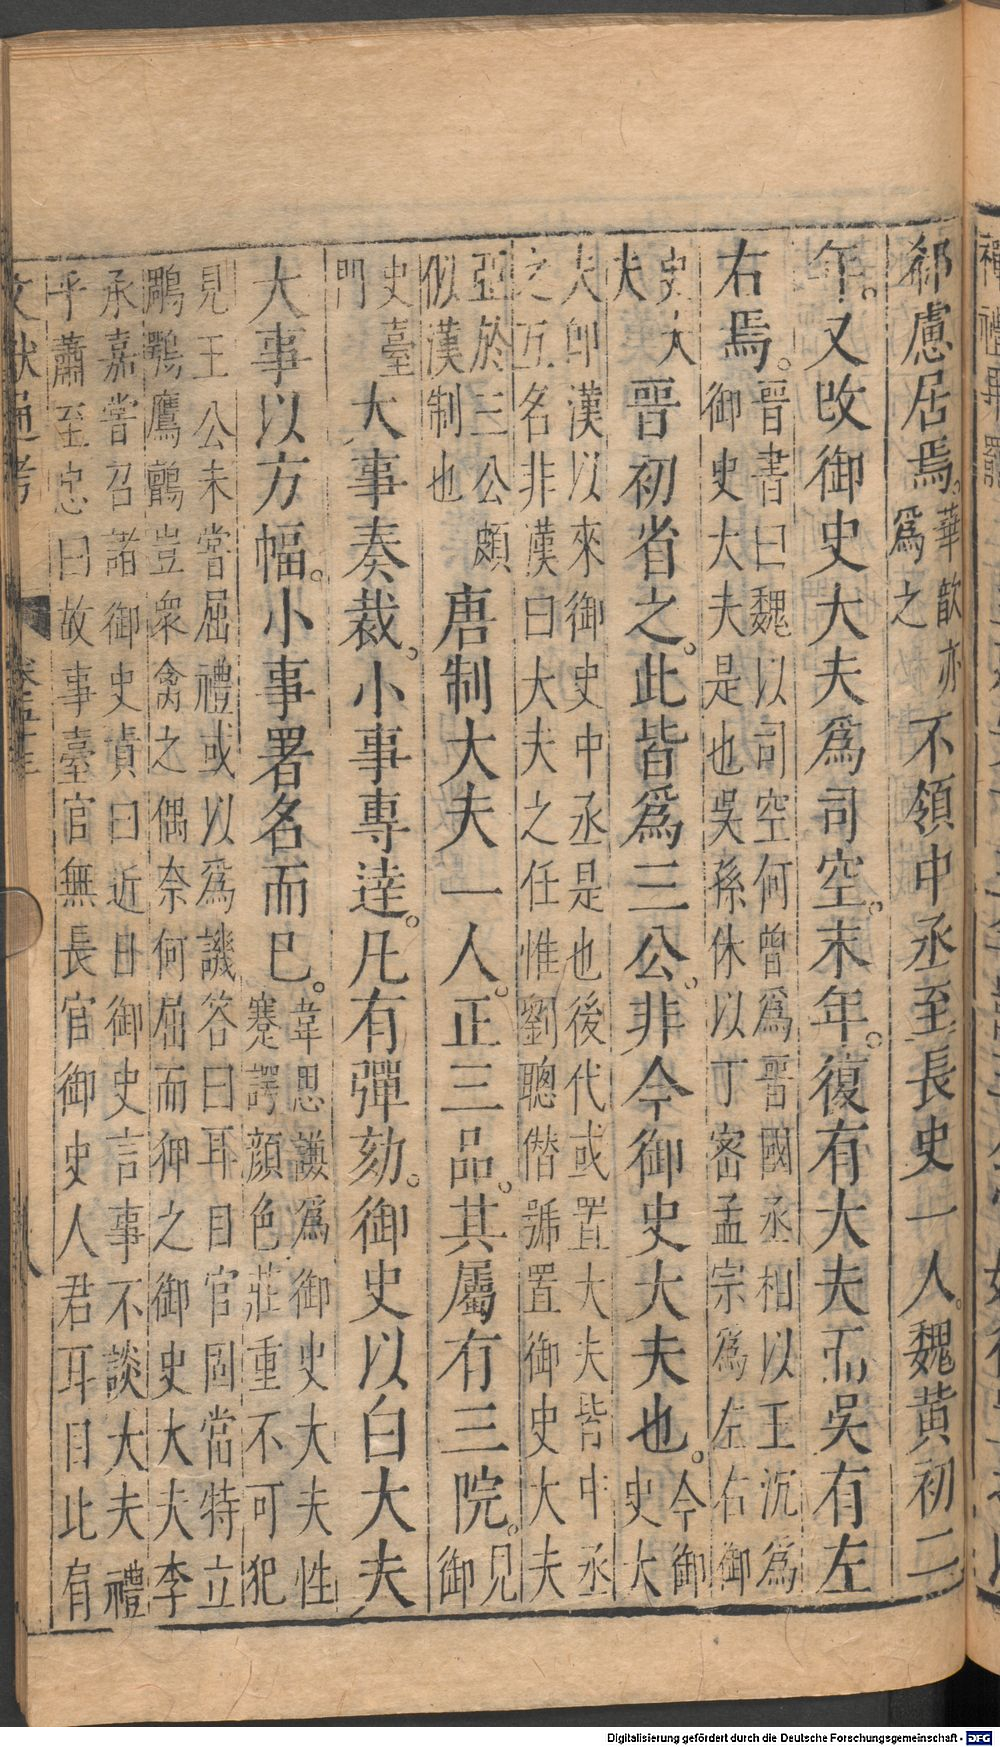 郗慮居焉。華歆亦為之不領中丞至長史一人。魏黃初二
年。又改御史大夫爲司空。末年。復有大夫而吳有左
右焉。晋書曰魏以司空何曾爲晋國丞相以王沉爲
御史大夫是也吳孫休以丁密孟宗爲左右御
史大
夫晋初省之。此皆爲三公。非今御史大夫也。今御
史大
夫卽漢以來御史中丞是也後代或置大夫皆中丞
之互名非漢曰大夫之任惟劉聰僭號置御史大夫
亞於三公頗
似漢制也唐制大夫一人。正三品。其屬有三院。見
御
史臺
門大事奏裁。小事專達。凡有彈劾。御史以白大夫
大事以方幅。小事署名而已。韋思謙爲御史大夫性
蹇諤顏色莊重不可犯
見王公未嘗屈禮或以爲譏答曰耳目官固當特立
鵰鶚鷹鸇豈衆禽之偶奈何屈而狎之御史大夫李
承嘉嘗召諸御史責曰近日御史言事不談大夫禮
乎蕭至忠曰故事臺官無長官御史人君耳目比肩
文獻通考 卷五十三 八
Digitalisierung gefördert durch die Deutsche Forschungsgemeinschaft - DFG